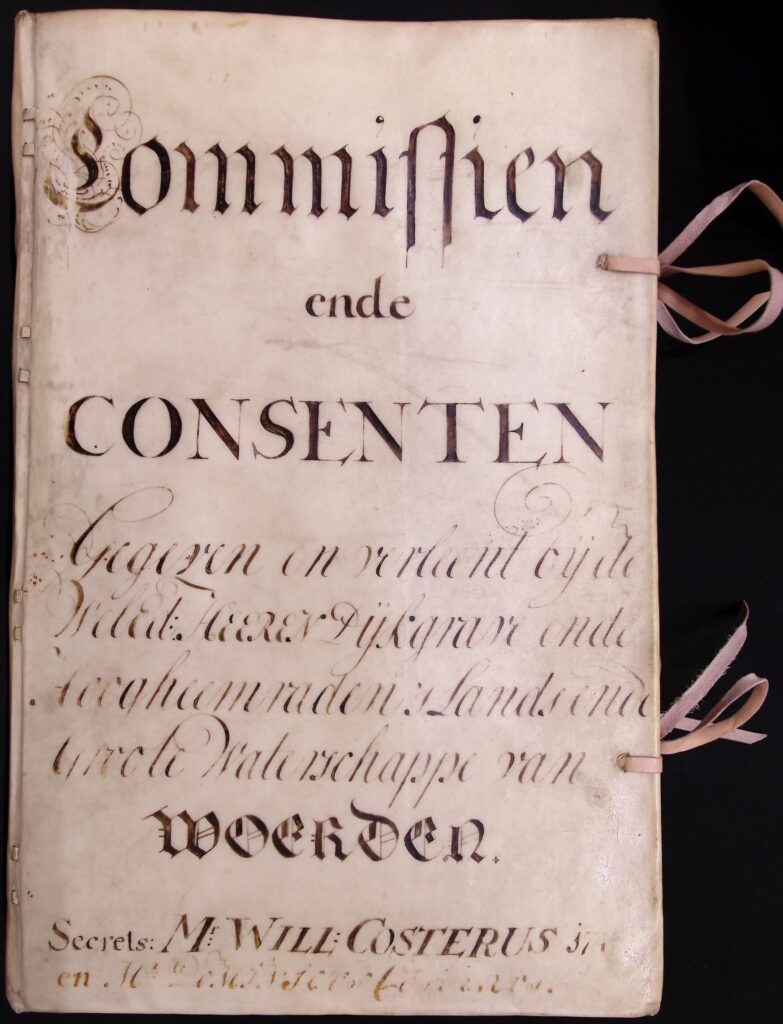 Commissien
ende
CONSENTEN
Gegeven en verleent bij de
Weled: HEEREN Dijkgrave ende
Hoogheemraden 's Lands ende
Groote Waterschappe van
WOERDEN.
Secrets: Mr. WILL: COSTERUS
en Mr.